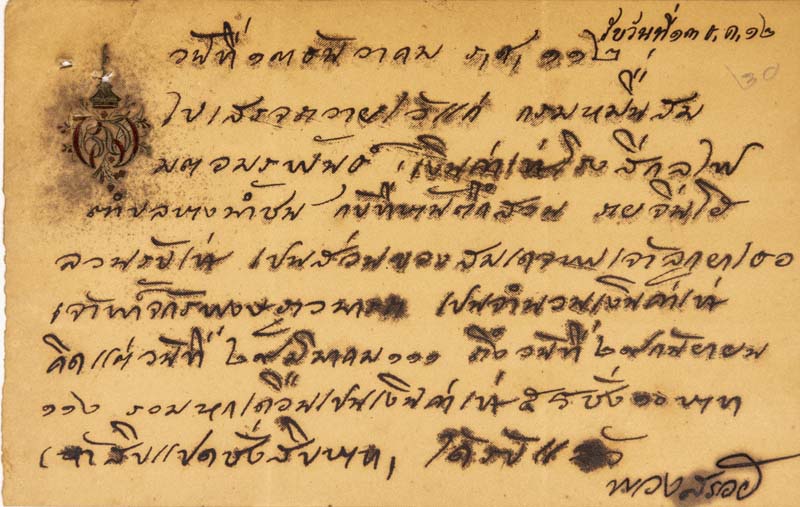 รับวันที่ ๑๓ ธ,ค,๑๒
30
วันที่ ๑๓ ธันวาคม ร,ศ, ๑๑๒
ใบเสรจถวายไว้แก่ กรมหมื่นสม
มตอมรพันธ์ เงินค่าเช่าโรงสีกลไฟ
ตำบลบางน้ำชน กับที่บ้านตึกสวน รายจีนไฮ
ลวนรับเช่า เปนส่วนของสมเดจพระเจ้าลูกยาเธอ
เจ้าฟ้าจักรพงษ เปนจำนวนเงินค่าเช่า
คิดแต่วันที่ ๒๙ มีนาคม ๑๑๑ ถึงวันที่ ๒๙ กันยายน
๑๑๒ รวมหกเดือนเปนเงินค่าเช่า ๕๘ ชั่ง ๑๐ บาท
(ห้าสิบแปดชั่งสิบบาท, ได้รับแล้ว
พวงสร้อย